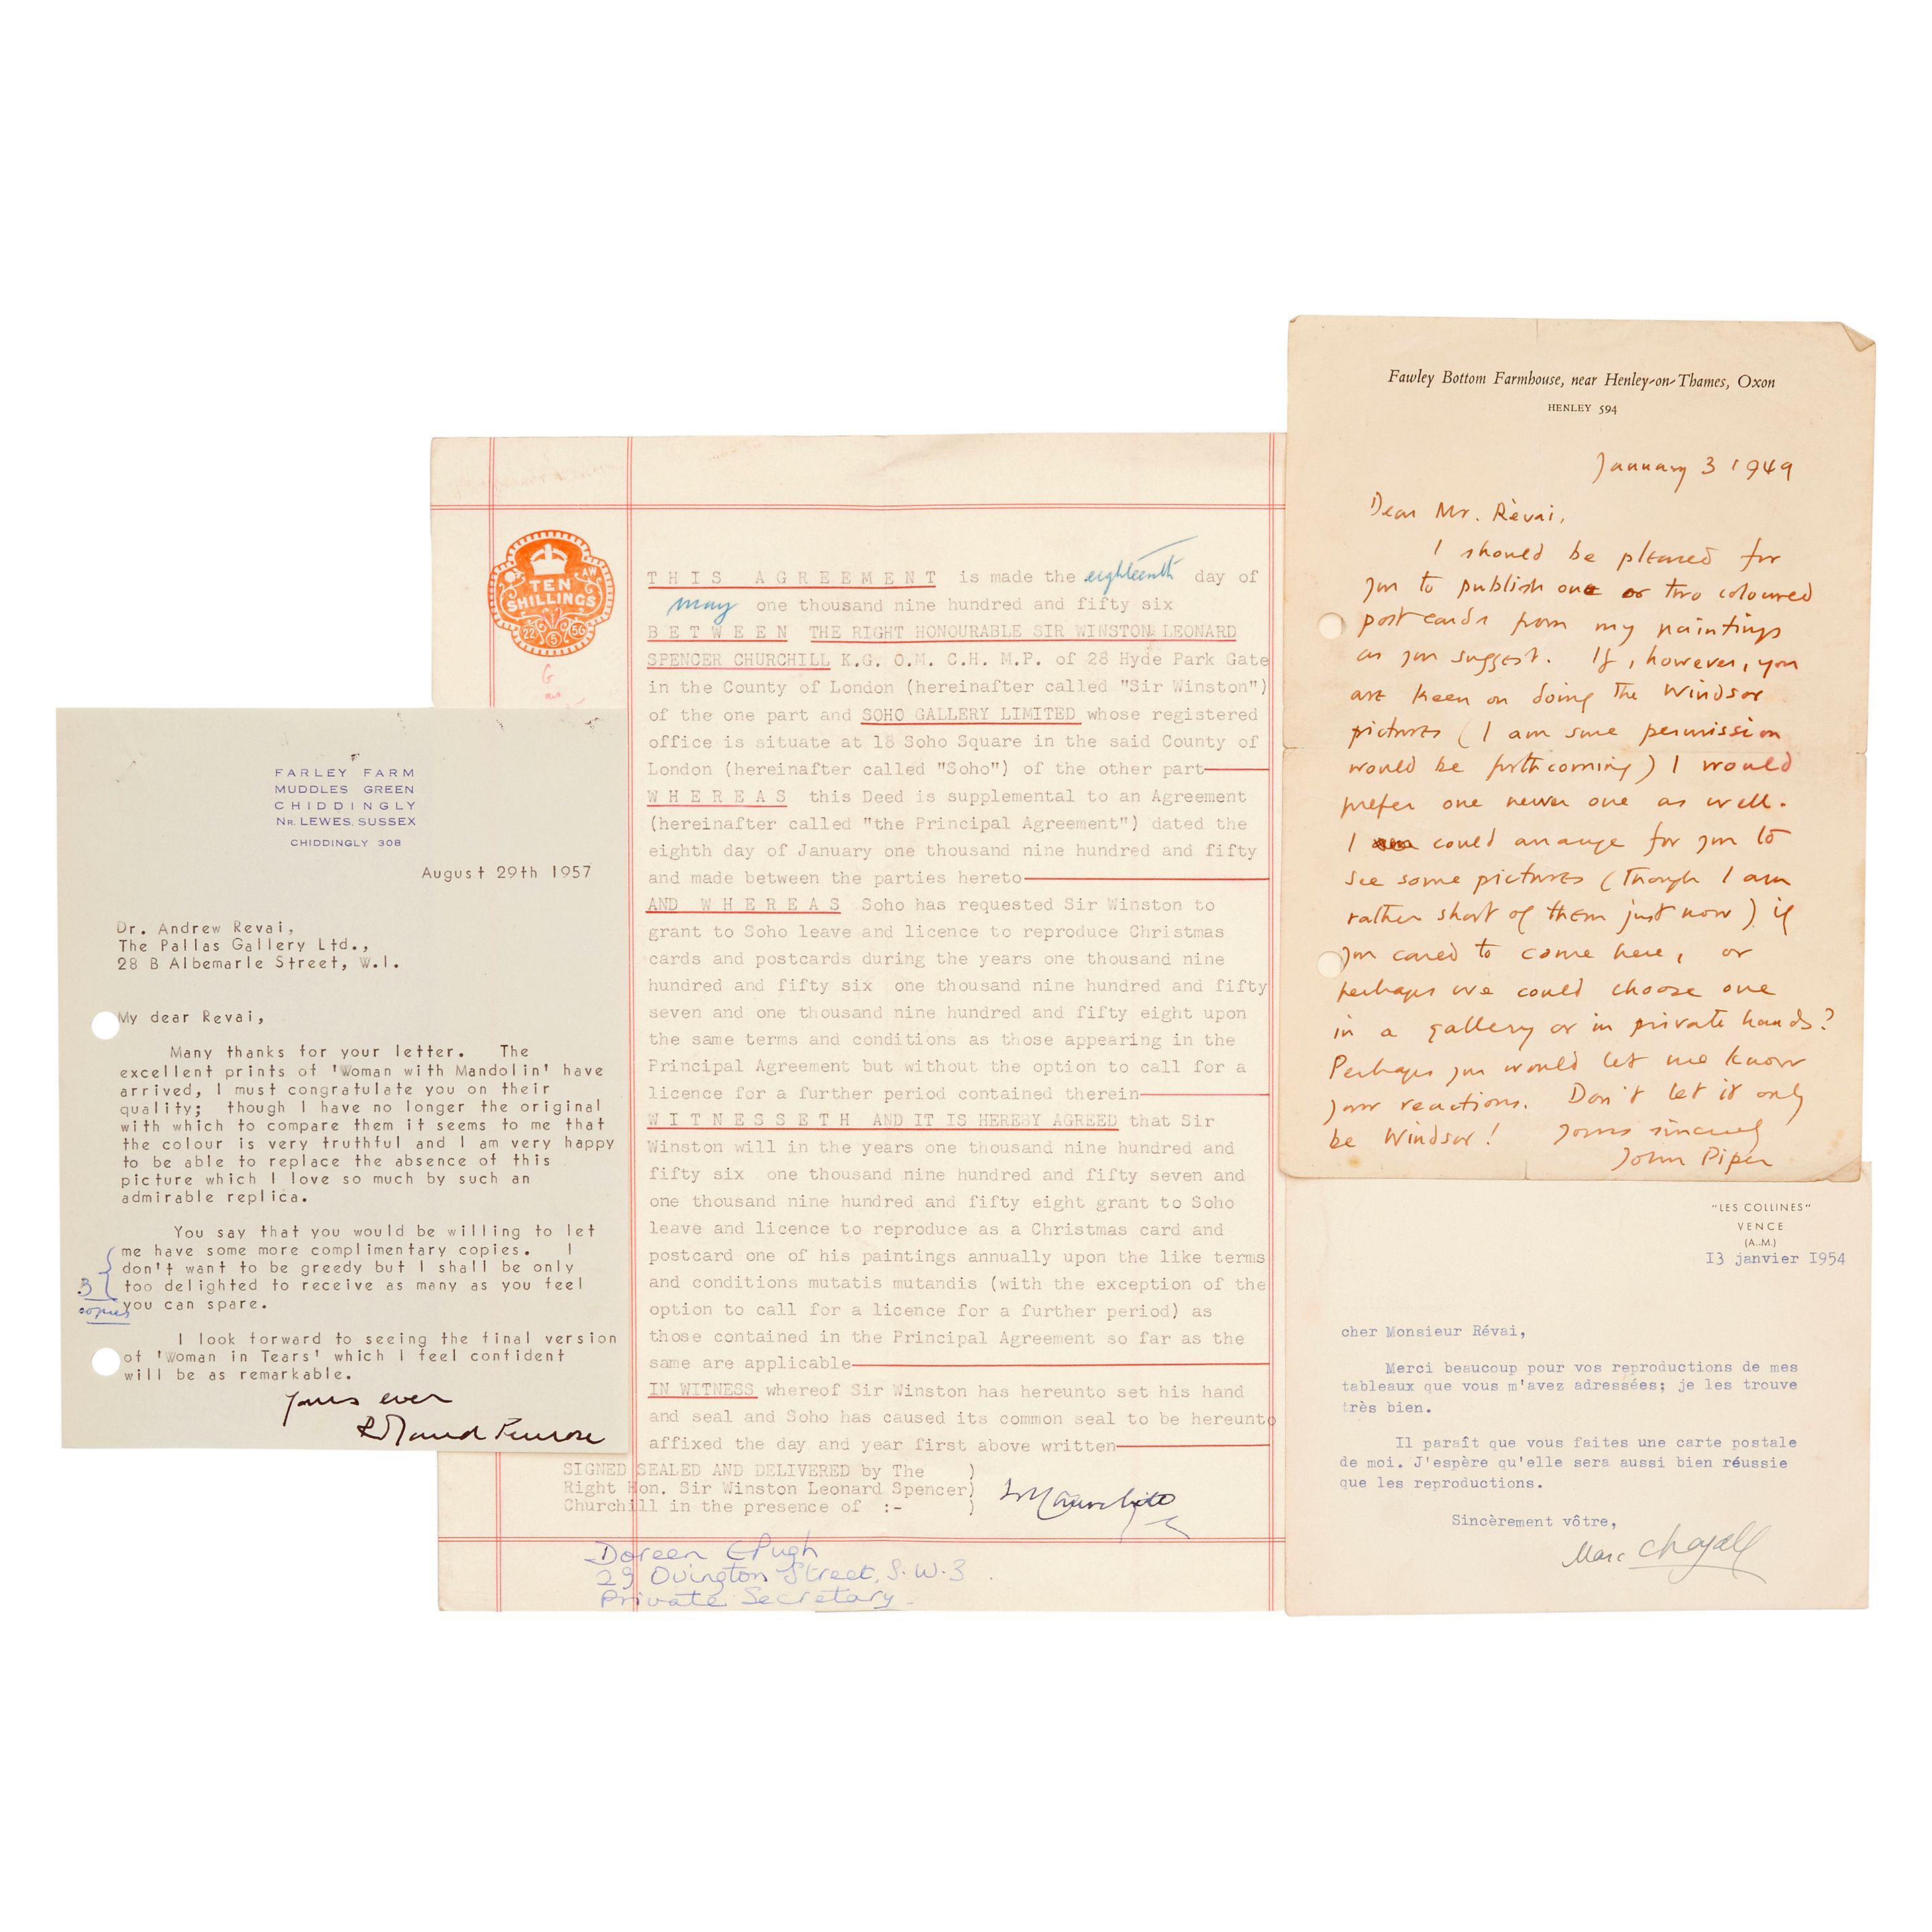 FARLEY FARM
MUDDLES GREEN
CHIDDINGLY
NR. LEWES, SUSSEX
CHIDDINGLY 308
August 29th 1957
Dr. Andrew Revai,
The Pallas Gallery Ltd.,
28 B Albemarle Street, W.I.
My dear Revai,
Many thanks for your letter. The
excellent prints of 'Woman with Mandolin' have
arrived, I must congratulate you on their
quality; though I have no longer the original
with which to compare them it seems to me that
the colour is very truthful and I am very happy
to be able to replace the absence of this
picture which I love so much by such an
admirable replica.
You say that you would be willing to let
me have some more complimentary copies. I
don't want to be greedy but I shall be only
too delighted to receive as many as you feel
you can spare.
3
copies
I look forward to seeing the final version
of 'Woman in Tears' which I feel confident
will be as remarkable.
Yours ever
Roland Penrose
TEN
SHILLINGS
AW
22 5 56
THIS AGREEMENT is made the eighteenth day of
May one thousand nine hundred and fifty six
BETWEEN THE RIGHT HONOURABLE SIR WINSTON LEONARD
SPENCER CHURCHILL K.G. O.M. C.H. M.P. of 28 Hyde Park Gate
in the County of London (hereinafter called "Sir Winston")
of the one part and SOHO GALLERY LIMITED whose registered
office is situate at 18 Soho Square in the said County of
London (hereinafter called "Soho") of the other part
WHEREAS this Deed is supplemental to an Agreement
(hereinafter called "the Principal Agreement") dated the
eighth day of January one thousand nine hundred and fifty
and made between the parties hereto
AND WHEREAS Soho has requested Sir Winston to
grant to Soho leave and licence to reproduce Christmas
cards and postcards during the years one thousand nine
hundred and fifty six one thousand nine hundred and fifty
seven and one thousand nine hundred and fifty eight upon
the same terms and conditions as those appearing in the
Principal Agreement but without the option to call for a
licence for a further period contained therein
WITNESSETH AND IT IS HEREBY AGREED that Sir
Winston will in the years one thousand nine hundred and
fifty six one thousand nine hundred and fifty seven and
one thousand nine hundred and fifty eight grant to Soho
leave and licence to reproduce as a Christmas card and
postcard one of his paintings annually upon the like terms
and conditions mutatis mutandis (with the exception of the
option to call for a licence for a further period) as
those contained in the Principal Agreement so far as the
same are applicable
IN WITNESS whereof Sir Winston has hereunto set his hand
and seal and Soho has caused its common seal to be hereunto
affixed the day and year first above written
SIGNED SEALED AND DELIVERED by The )
Right Hon. Sir Winston Leonard Spencer)
Churchill in the presence of :- )
Doreen Pugh
29 Ovington Street, S.W.3.
Private Secretary.
Fawley Bottom Farmhouse, near Henley-on-Thames, Oxon
HENLEY 594
January 3 1949
Dear Mr. Rèvai,
I should be pleased for
you to publish one or two coloured
postcards from my paintings
as you suggest. If, however, you
are keen on doing the Windsor
pictures (I am sure permission
would be forthcoming) I would
prefer one newer one as well.
I could arrange for you to
see some pictures (though I am
rather short of them just now) if
you cared to come here, or
perhaps we could choose one
in a gallery or in private hands?
Perhaps you would let me know
your reactions. Don't let it only
be Windsor! Yours sincerely
John Piper
"LES COLLINES"
VENCE
(A.M.)
13 janvier 1954
cher Monsieur Révai,
Merci beaucoup pour vos reproductions de mes
tableaux que vous m'avez adressées; je les trouve
très bien.
Il paraît que vous faites une carte postale
de moi. J'espère qu'elle sera aussi bien réussie
que les reproductions.
Sincèrement vôtre,
Marc Chagall